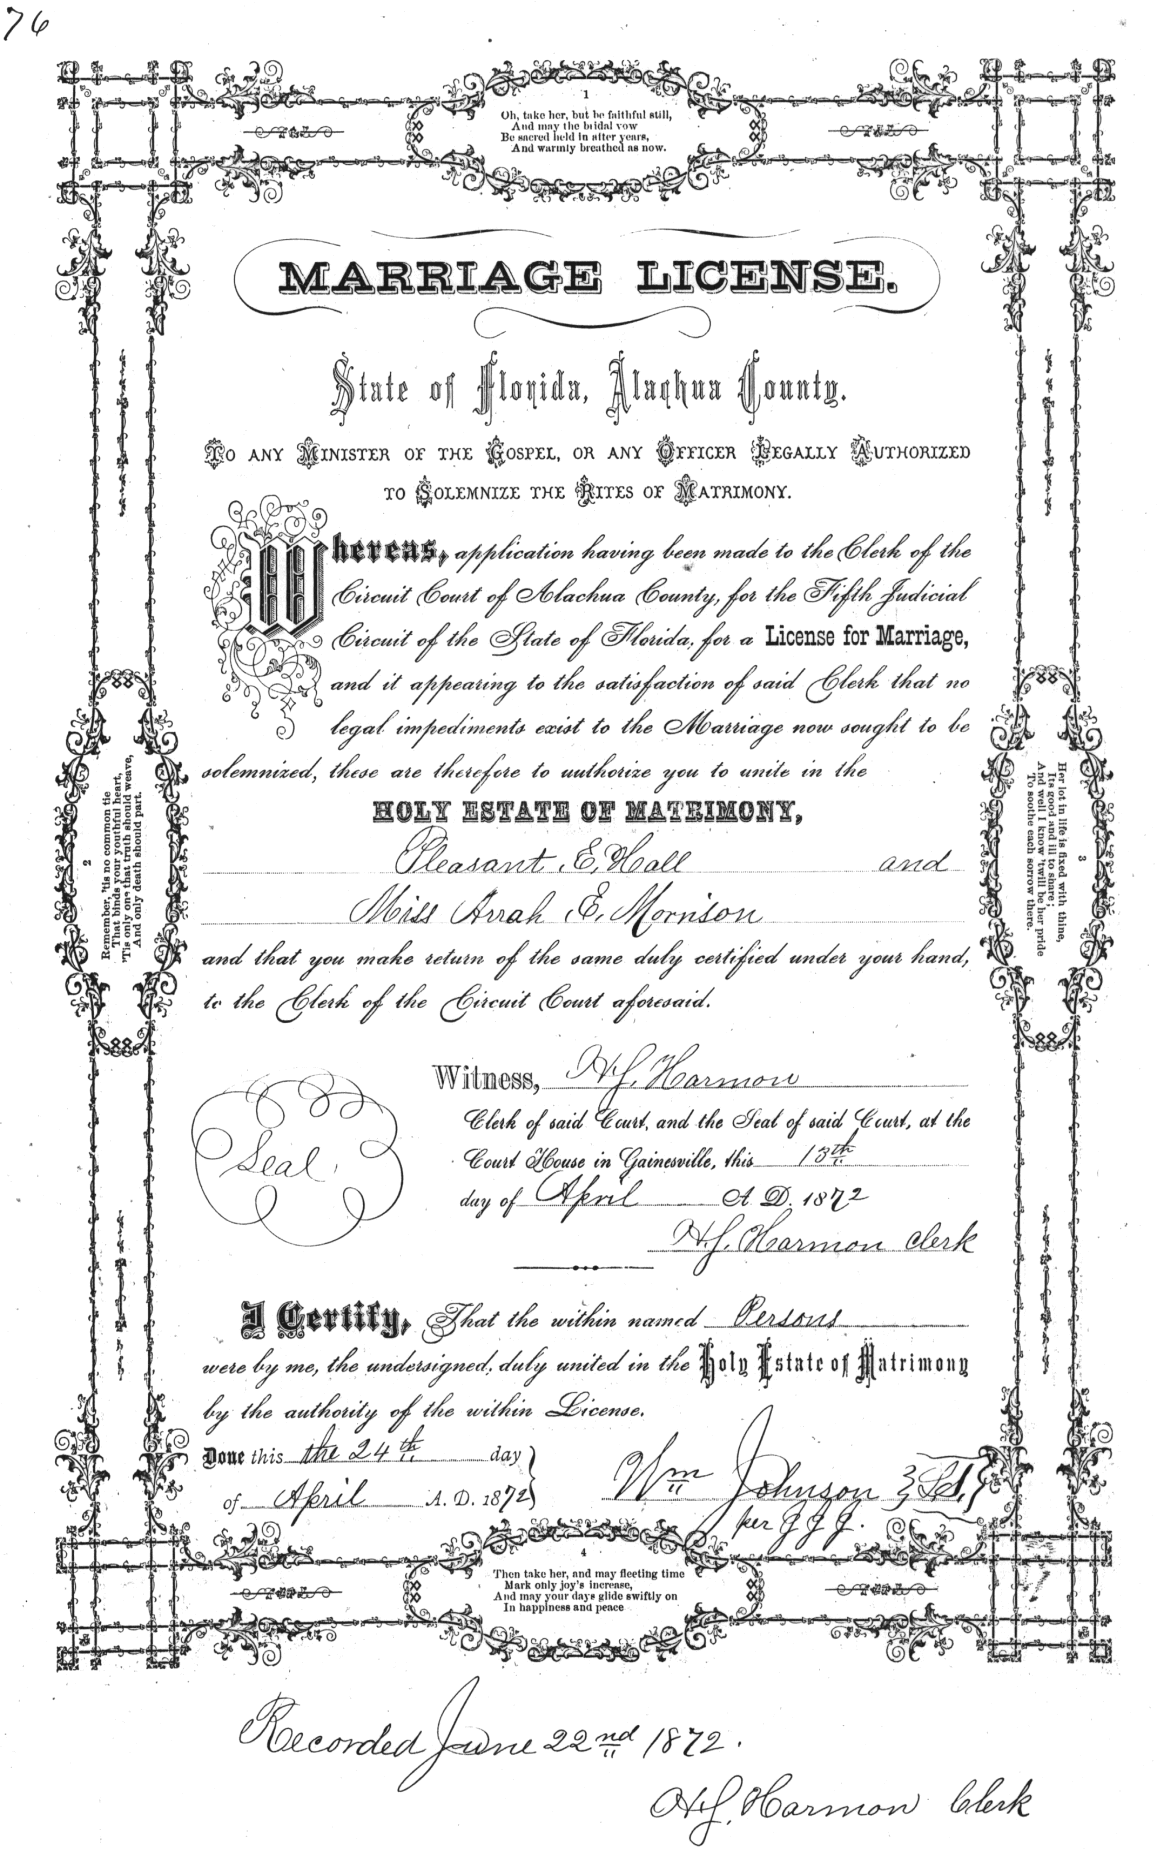 76
1
Oh, take her, but be faithful still,
And may the bridal vow
Be sacred held in after years,
And warmly breathed as now.
MARRIAGE LICENSE.
State of Florida, Alachua County.
TO ANY MINISTER OF THE GOSPEL, OR ANY OFFICER LEGALLY AUTHORIZED
TO SOLEMNIZE THE RITES OF MATRIMONY.
Whereas, application having been made to the Clerk of the
Circuit Court of Alachua County, for the Fifth Judicial
Circuit of the State of Florida, for a License for Marriage,
and it appearing to the satisfaction of said Clerk that no
legal impediments exist to the Marriage now sought to be
solemnized, these are therefore to authorize you to unite in the
HOLY ESTATE OF MATRIMONY,
Pleasant E. Hall and
Miss Arrah E. Morrison
and that you make return of the same duly certified under your hand,
to the Clerk of the Circuit Court aforesaid.
2
Remember, 'tis no common tie
That binds your youthful heart,
'Tis only one that truth should weave,
And only death should part.
3
Her lot in life is fixed with thine,
Its good and ill to share;
And well I know 'twill be her pride
To soothe each sorrow there.
Witness, H. J. Harmon
Clerk of said Court, and the Seal of said Court, at the
Court House in Gainesville, this 13th
day of April A. D. 1872
Seal
H. J. Harmon Clerk
I Certify, That the within named Persons
were by me, the undersigned, duly united in the Holy Estate of Matrimony
by the authority of the within License.
Done this the 24th day
of April A. D. 1872
Wm Johnson
per J J J.
4
Then take her, and may fleeting time
Mark only joy's increase,
And may your days glide swiftly on
In happiness and peace
Recorded June 22nd 1872.
H. J. Harmon Clerk